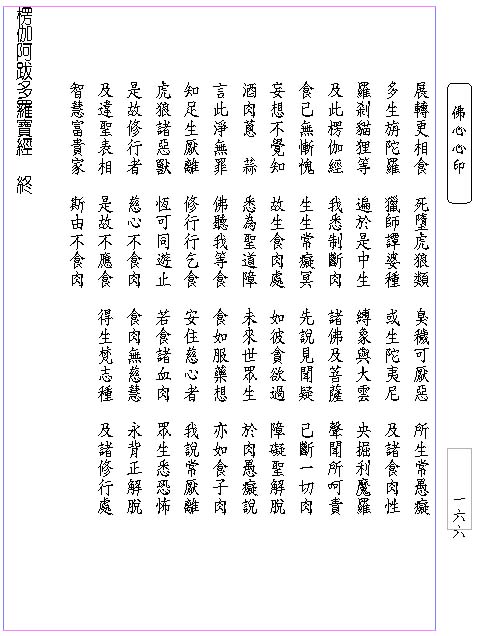 佛心心印
展轉更相食 死墮虎狼類 臭穢可厭惡 所生常愚癡
多生旃陀羅 獵師譚婆種 或生陀夷尼 及諸食肉性
羅剎貓狸等 遍於是中生 縛象與大雲 央掘利魔羅
及此楞伽經 我悉制斷肉 諸佛及菩薩 聲聞所呵責
食已無慚愧 生生常癡冥 先說見聞疑 已斷一切肉
妄想不覺知 故生食肉處 如彼貪欲過 障礙聖解脫
酒肉蔥 蒜 悉為聖道障 未來世眾生 於肉愚癡說
言此淨無罪 佛聽我等食 食如服藥想 亦如食子肉
知足生厭離 修行行乞食 安住慈心者 我說常厭離
虎狼諸惡獸 恆可同遊止 若食諸血肉 眾生悉恐怖
是故修行者 慈心不食肉 食肉無慈慧 永背正解脫
及違聖表相 是故不應食 得生梵志種 及諸修行處
智慧富貴家 斯由不食肉
楞伽阿跋多羅寶經 終
一六六